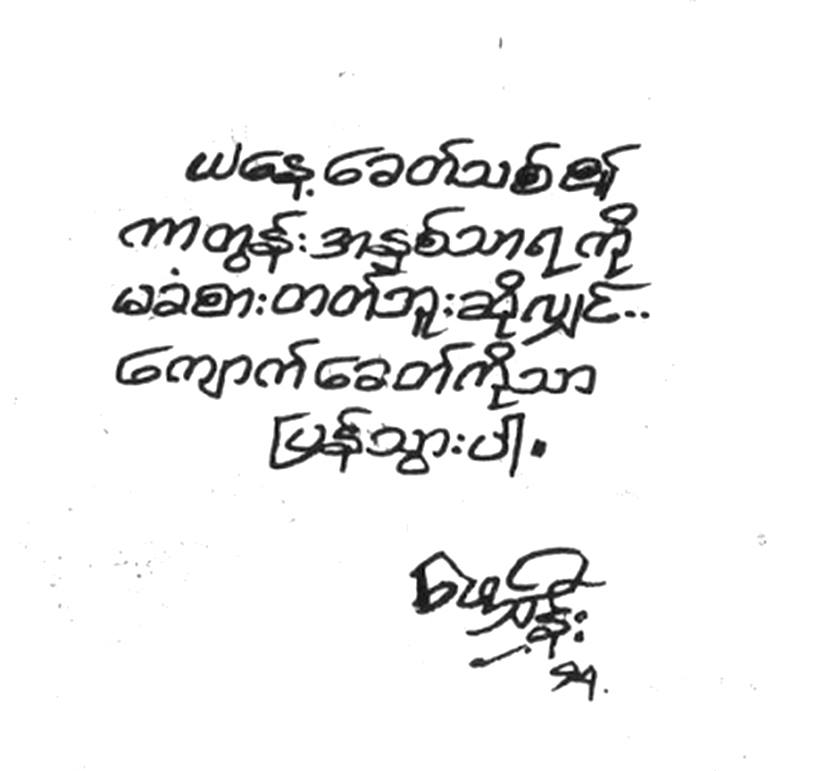 ယနေ့ခေတ်သစ်၏
ကာတွန်းအနှစ်သာရကို
မခံစားတတ်ဘူးဆိုလျှင်..
ကျောက်ခေတ်ကိုသာ
ပြန်သွားပါ။